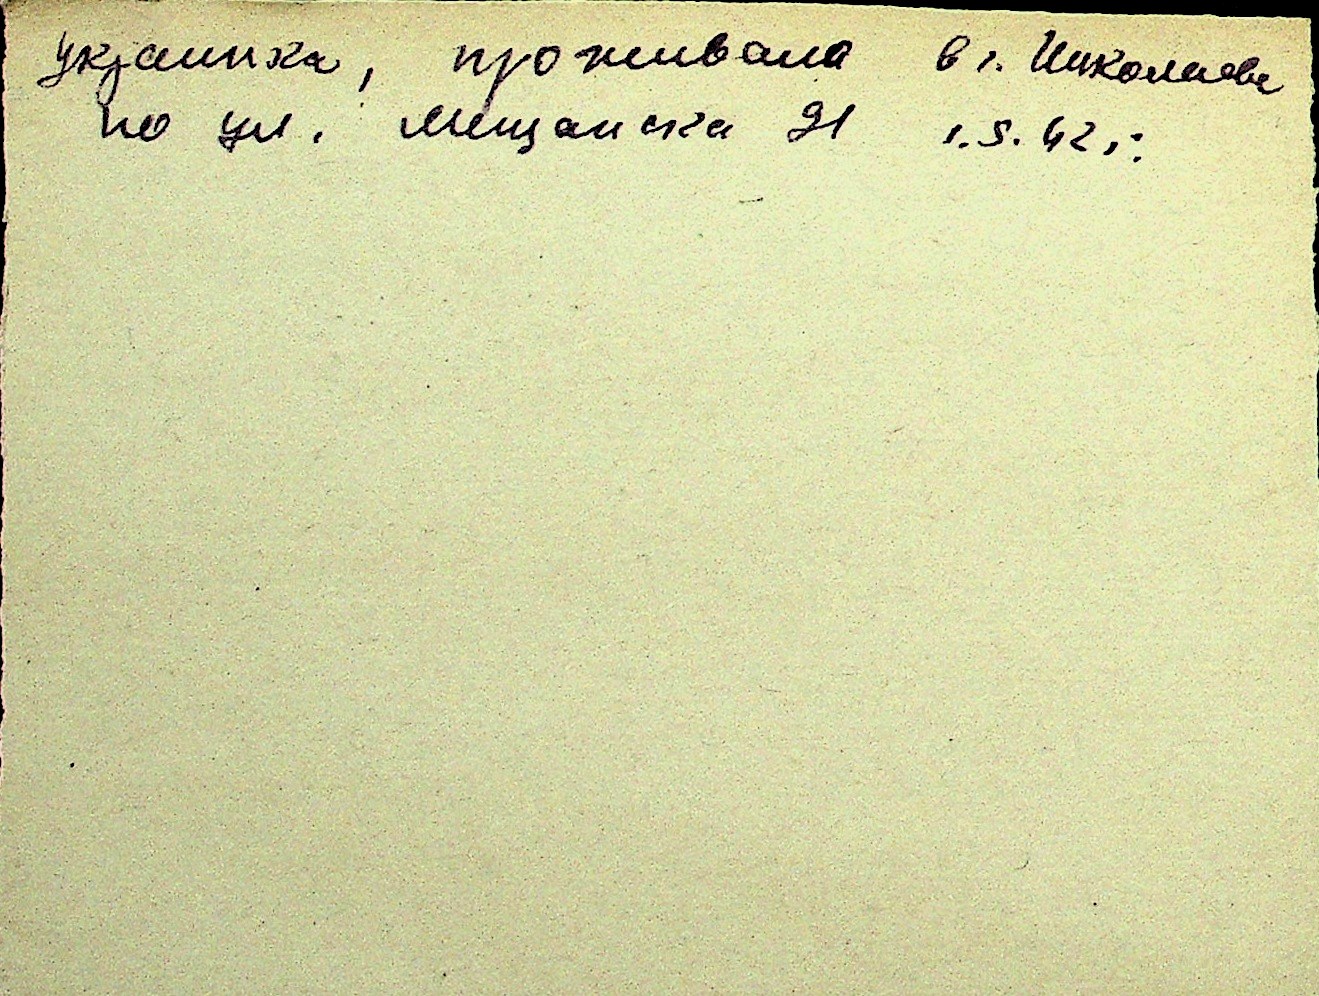 украинка, проживала в г. Николаеве
по ул. Мещанска 21 1.5.42г: